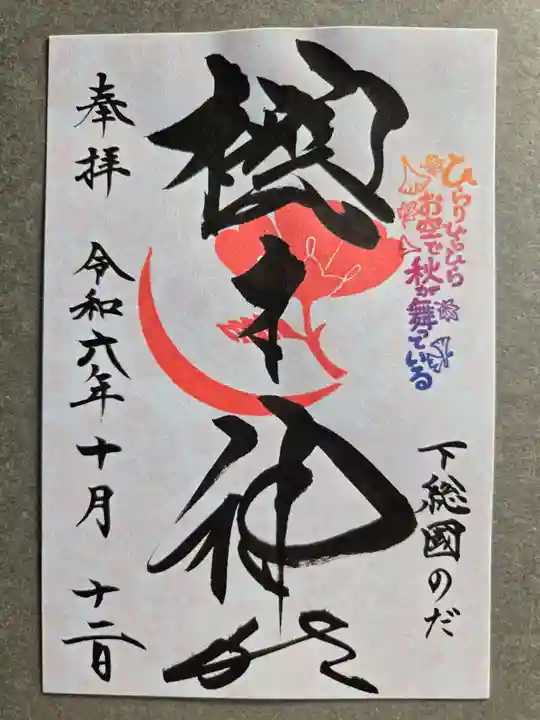 ひらりひらひら
お空で
秋が舞っている
下総國のだ
櫻木神社
奉拝 令和六年十月十二日